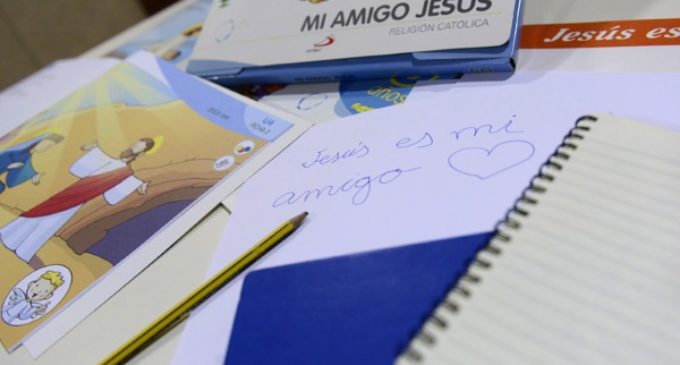 MI AMIGO JESÚS
RELIGIÓN CATÓLICA
Jesús es
Jesús es mi
amigo